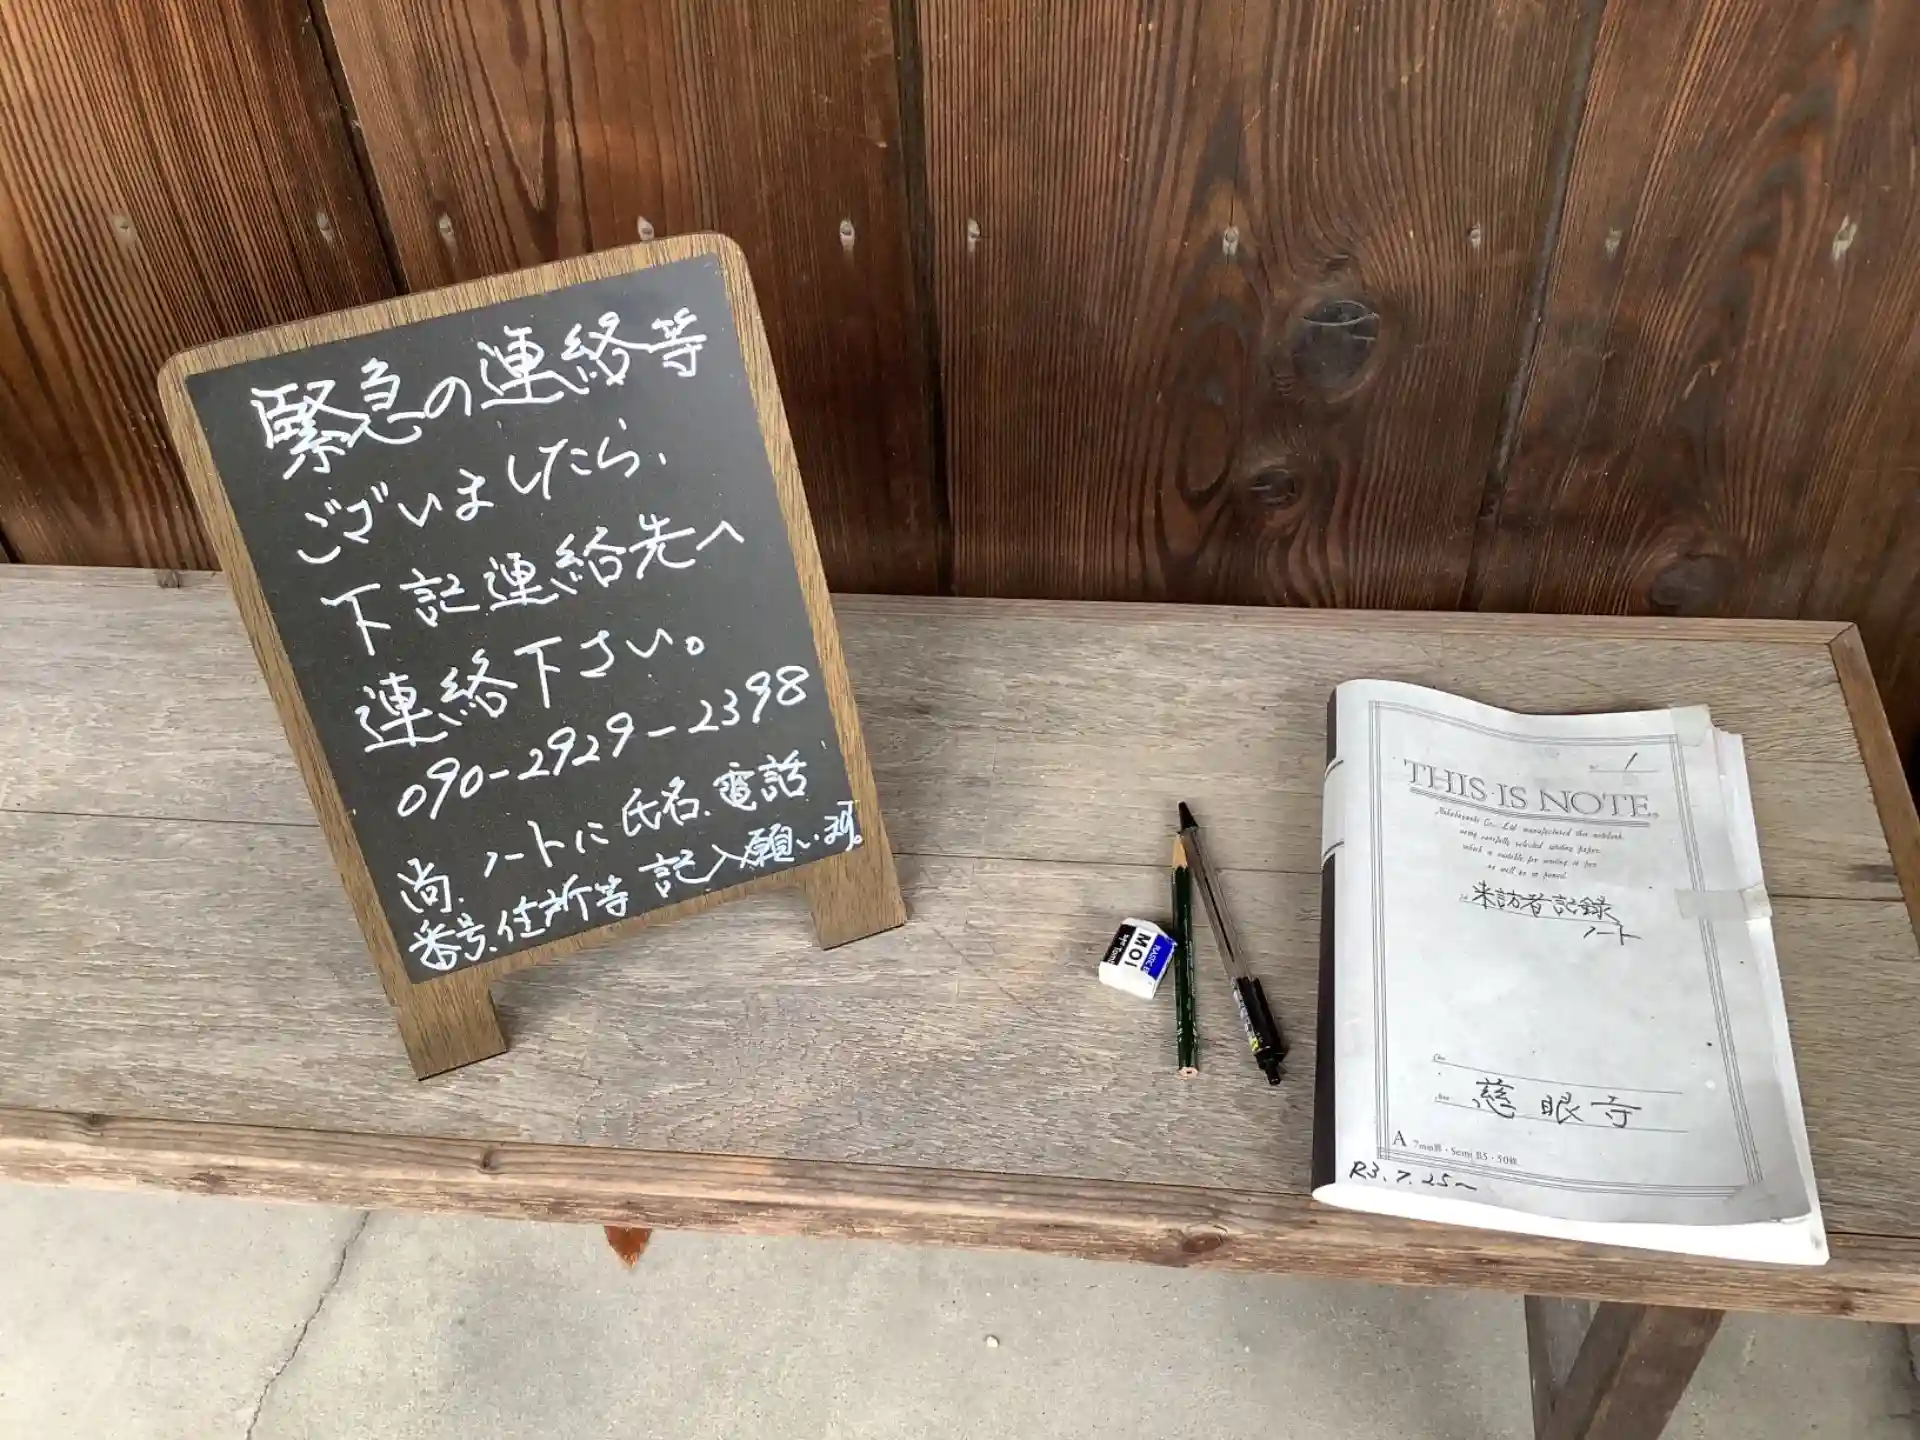 緊急の連絡等
ございましたら、
下記連絡先へ
連絡下さい。
090-2929-2398
尚、ノートに氏名、電話
番号、住所等 記入願います。
MOI
PLASTIC
1
THIS IS NOTE.
Nakabayashi Co., Ltd. manufactured this notebook
using carefully selected writing paper,
which is suitable for writing in pen
as well as in pencil.
来訪者記録
ノート
慈眼寺
A 7mm罫・Semi B5・50枚
R3.7.25〜